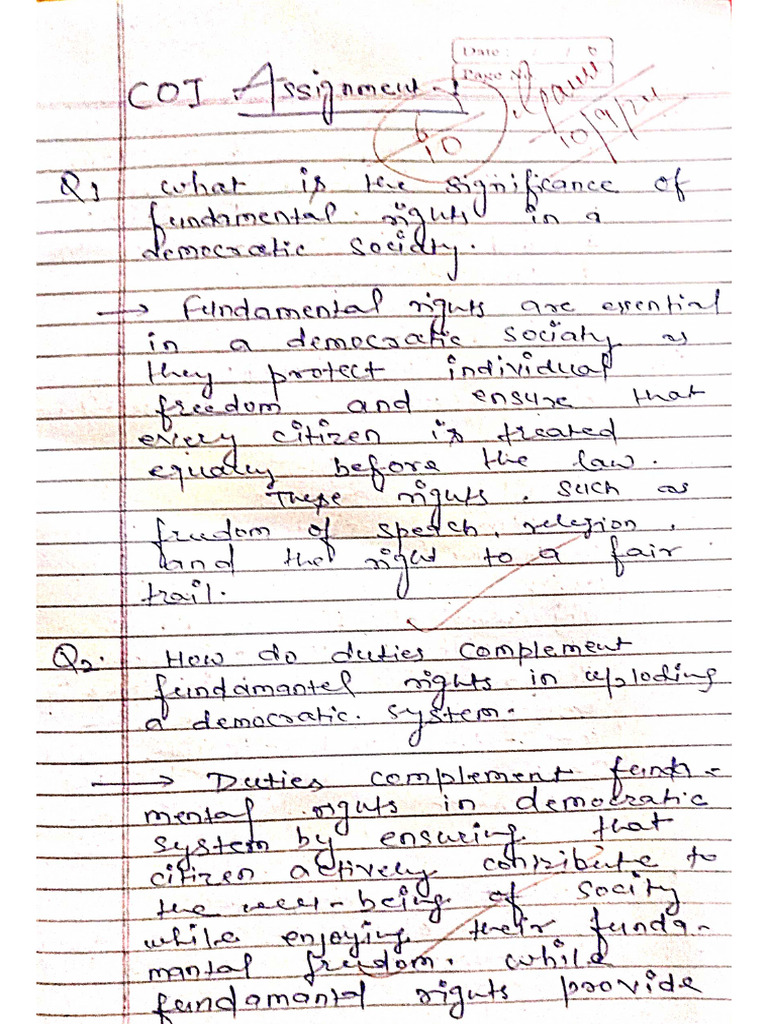 Date: / /
Page No.
COI Assignment
6/10
10/9/24
Q1 what is the significance of
fundamental rights in a
democratic sociaty.
→ Fundamental rights are essential
in a democratic sociaty as
they protect individual
freedom and ensure that
every citizen is treated
equaley before the law.
These rights, such as
freedom of speech, relegion,
and the right to a fair
trail.
Q2. How do duties complement
fundamantel rights in uploding
a democratic system.
→ Duties complement funda-
mental rights in democratic
system by ensuring that
citizen actively contribute to
the well-being of socity
while enjoying their funda-
mantal freedom. while
fundamantal rights provide